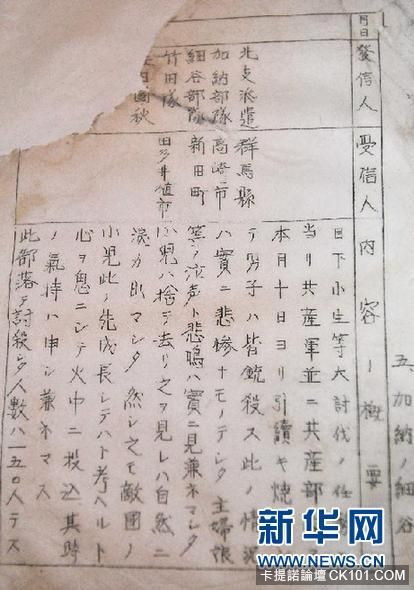 五、加納ノ細谷
月日
發信人
受信人
内容ノ概要
北支派遣
加納部隊
細谷部隊
竹田隊
國秋
群馬縣
高崎市
新田町
田多井植市
目下小生等大討伐ノ任
当リ共産軍並ニ共産部
本月十日ヨリ引續キ燒
テ男子ハ皆銃殺ス此ノ情況
ハ實ニ悲惨ナモノテシタ 主婦娘
等ノ泣声ト悲鳴ハ實ニ見兼ネマシタ
小児ハ捨テ去リ之ヲ見レハ自然ニ
涙カ出マシタ 然シ之モ敵国ノ
小児此ノ先成長シテハト考ヘルト
心ヲ鬼ニシテ火中ニ投込其時
ノ氣持ハ申シ兼ネマス
此部落テ討殺シタ人数ハ一五〇人テス
新华网
WWW.NEWS.CN
卡提諾論壇CK101.com